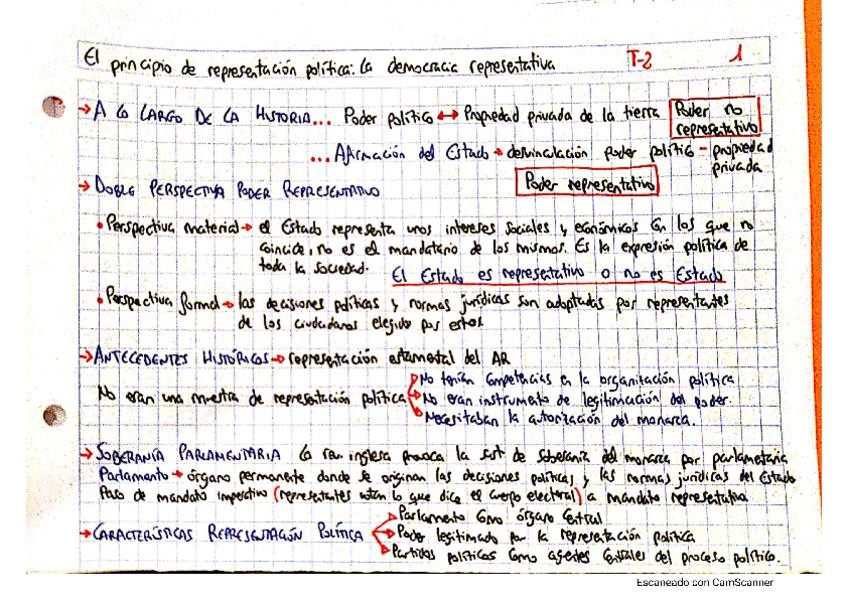 El principio de representación política: la democracia representativa T-2 1
→ A LO LARGO DE LA HISTORIA... Poder político ↔ Propiedad privada de la tierra Poder no
representativo
... Afirmación del Estado → desvinculación poder político - propiedad
privada
→ DOBLE PERSPECTIVA PODER REPRESENTATIVO Poder representativo
• Perspectiva material → el Estado representa unos intereses sociales y económicos con los que no
coincide, no es el mandatario de los mismos. Es la expresión política de
toda la sociedad. El Estado es representativo o no es Estado
• Perspectiva formal → las decisiones políticas y normas jurídicas son adoptadas por representantes
de los ciudadanos elegido por estos
→ ANTECEDENTES HISTÓRICOS → representación estamental del AR
No tenían competencias en la organización política
No eran una muestra de representación política No eran instrumento de legitimación del poder.
Necesitaban la autorización del monarca.
→ SOBERANÍA PARLAMENTARIA la rev. inglesa provoca la sust. de soberanía del monarca por parlamentaria
Parlamento → órgano permanente donde se originan las decisiones políticas y las normas jurídicas del Estado
Paso de mandato imperativo (representantes votan lo que dice el cuerpo electoral) a mandato representativo
Parlamento como órgano central
→ CARACTERÍSTICAS REPRESENTACIÓN POLÍTICA Poder legitimado por la representación política
Partidos políticos como agentes centrales del proceso político.
Escaneado con CamScanner